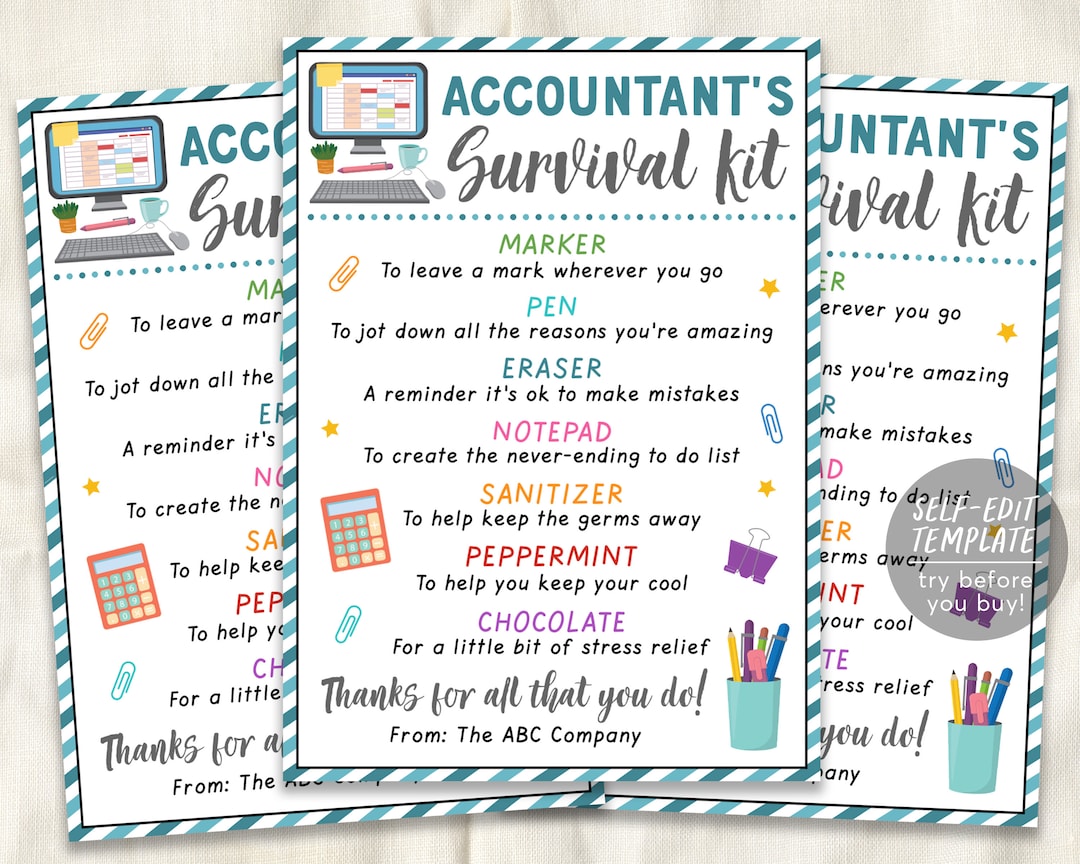 ACCOUNTANT'S
Survival Kit
MARKER
To leave a mark wherever you go
PEN
To jot down all the reasons you're amazing
ERASER
A reminder it's ok to make mistakes
NOTEPAD
To create the never-ending to do list
SANITIZER
To help keep the germs away
PEPPERMINT
To help you keep your cool
CHOCOLATE
For a little bit of stress relief
Thanks for all that you do!
From: The ABC Company
ACCOU
Sur
MA
To leave a mar
To jot down all the
ER
A reminder it's
NO
To create the ne
SA
To help kee
PEP
To help yo
CH
For a little
Thanks for a
From: The ABC Compan
UNTANT'S
vival Kit
ER
erever you go
ns you're amazing
R
make mistakes
AD
nding to do list
ER
erms away
INT
your cool
TE
tress relief
you do!
pany
SELF-EDIT
TEMPLATE
try before
you buy!